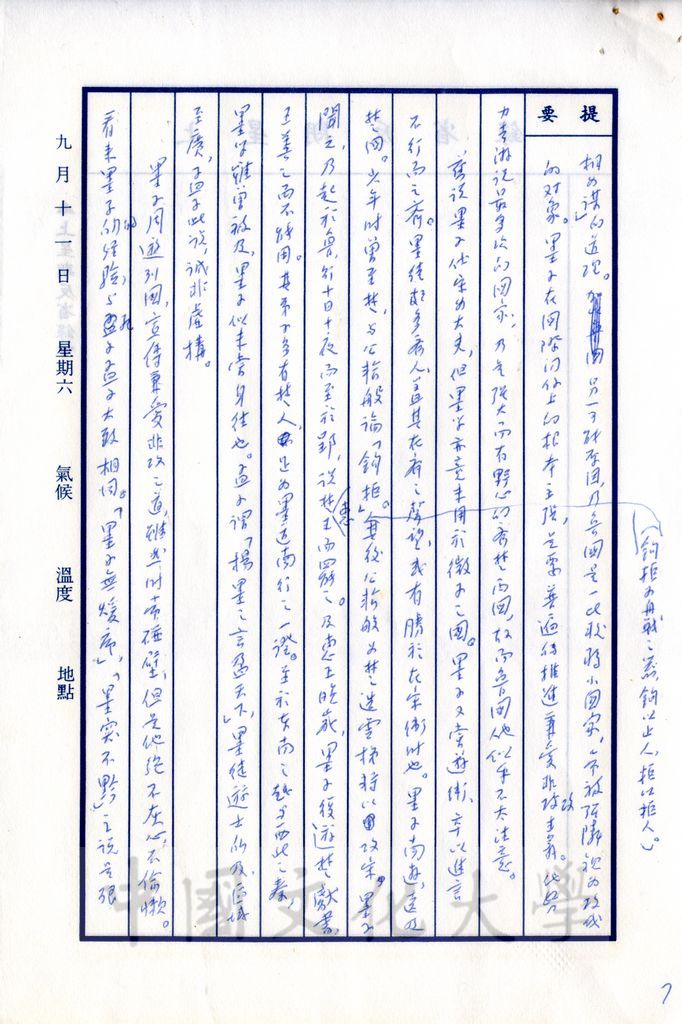 提要
相如謀的道理。另一可能原因,乃魯國是一比較弱小國家,常被強隣視為攻伐
的对象。墨子在國際問題上的根本主張,是要普遍的推進兼愛非攻主義。他努
力去游說最多次的國家,乃是強大而有野心的齊楚兩國,故而魯國他似乎不大注意。
舊說墨子仕宋為大夫,但墨學亦竟未用於微子之國。墨子又嘗遊衛,卒以進言
不行而之齊。墨徒頗多齊人,蓋其在齊之聲望,或有勝於在宋衛時也。墨子南遊,遠及
楚國。少年時曾至楚,与公輸般論「鉤拒」。其後公輸般為楚造雲梯將以攻宋,墨子
聞之,乃起於魯,行十日十夜而至於郢,說楚王而罷之。及惠王晚歲,墨子復遊楚獻書,
王善之而不能用。其弟子多有楚人,是為墨道南行之一證。至於東南之越与西北之秦,
墨學雖曾被及,墨子似未嘗身往也。孟子謂「楊墨之言盈天下」,墨徒遊士所及,區域
至廣,孟子此說,誠非虛構。
墨子周遊列國,宣傳兼愛非攻之道,雖然時常碰壁,但是他絕不灰心,不偷懶。
看來墨子的經驗与孔子孟子大致相同。「墨子無煖席」,「墨突不黔」之說是很
(鉤拒為舟戰之器,鉤以止人,拒以拒人。)
惠
九月十一日 星期六 氣候 溫度 地點
中國文化大學
7